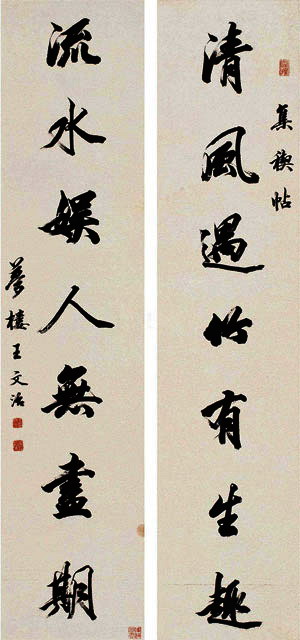 集禊帖
清風過竹有生趣
流水娱人無盡期
夢樓王文治